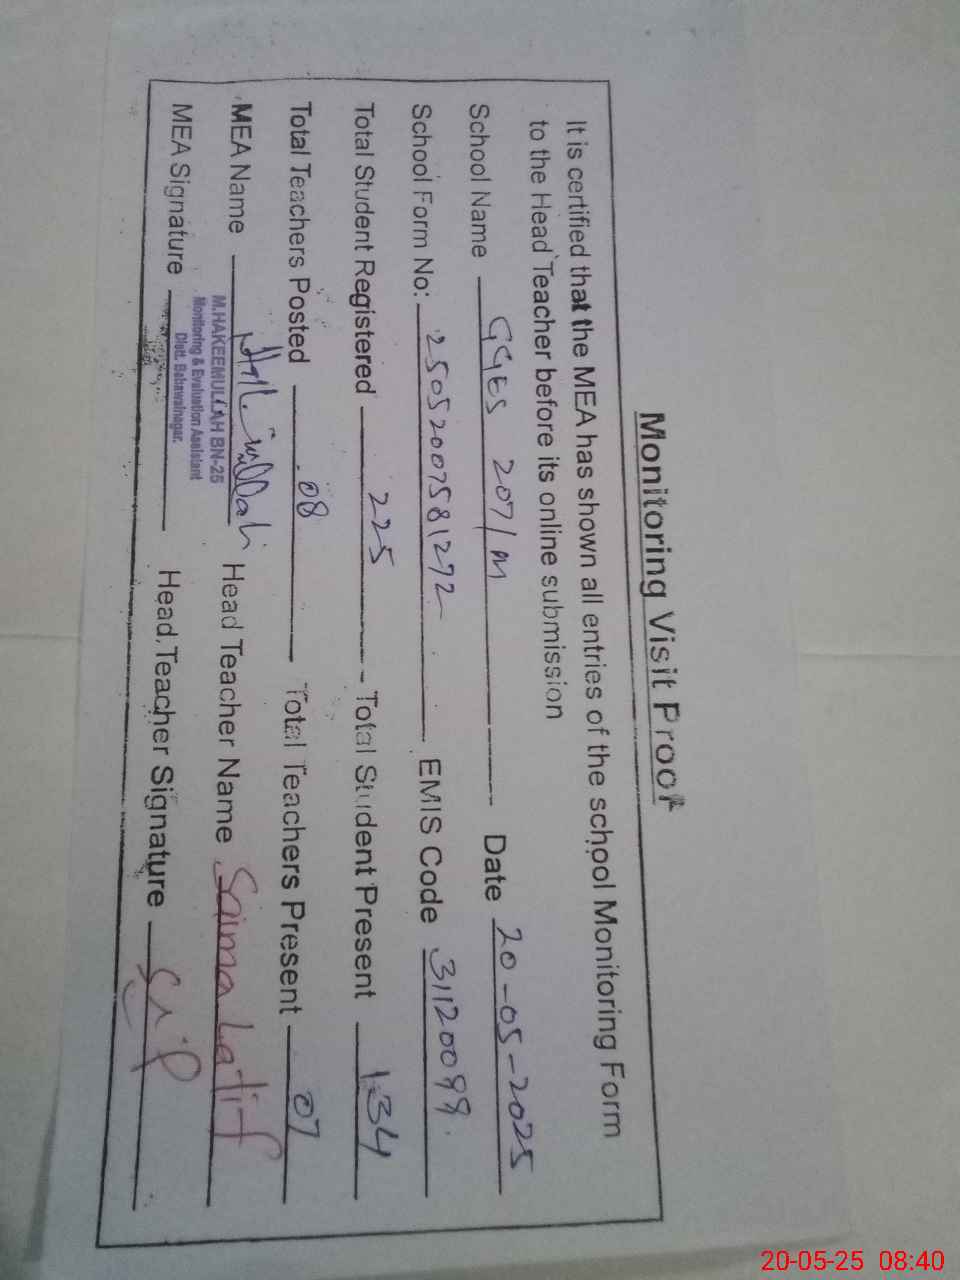 Monitoring Visit Proof
It is certified that the MEA has shown all entries of the school Monitoring Form
to the Head Teacher before its online submission
School Name GGES 207/M Date 20-05-2025
School Form No: 25052007581272 EMIS Code 31120099
Total Student Registered 225 Total Student Present 134
Total Teachers Posted 08 Total Teachers Present 07
MEA Name Head Teacher Name Saima Latif
M.HAKEEMULLAH BN-25
Monitoring & Evaluation Assistant
Distt. Bahawalnagar.
MEA Signature Head Teacher Signature
20-05-25 08:40